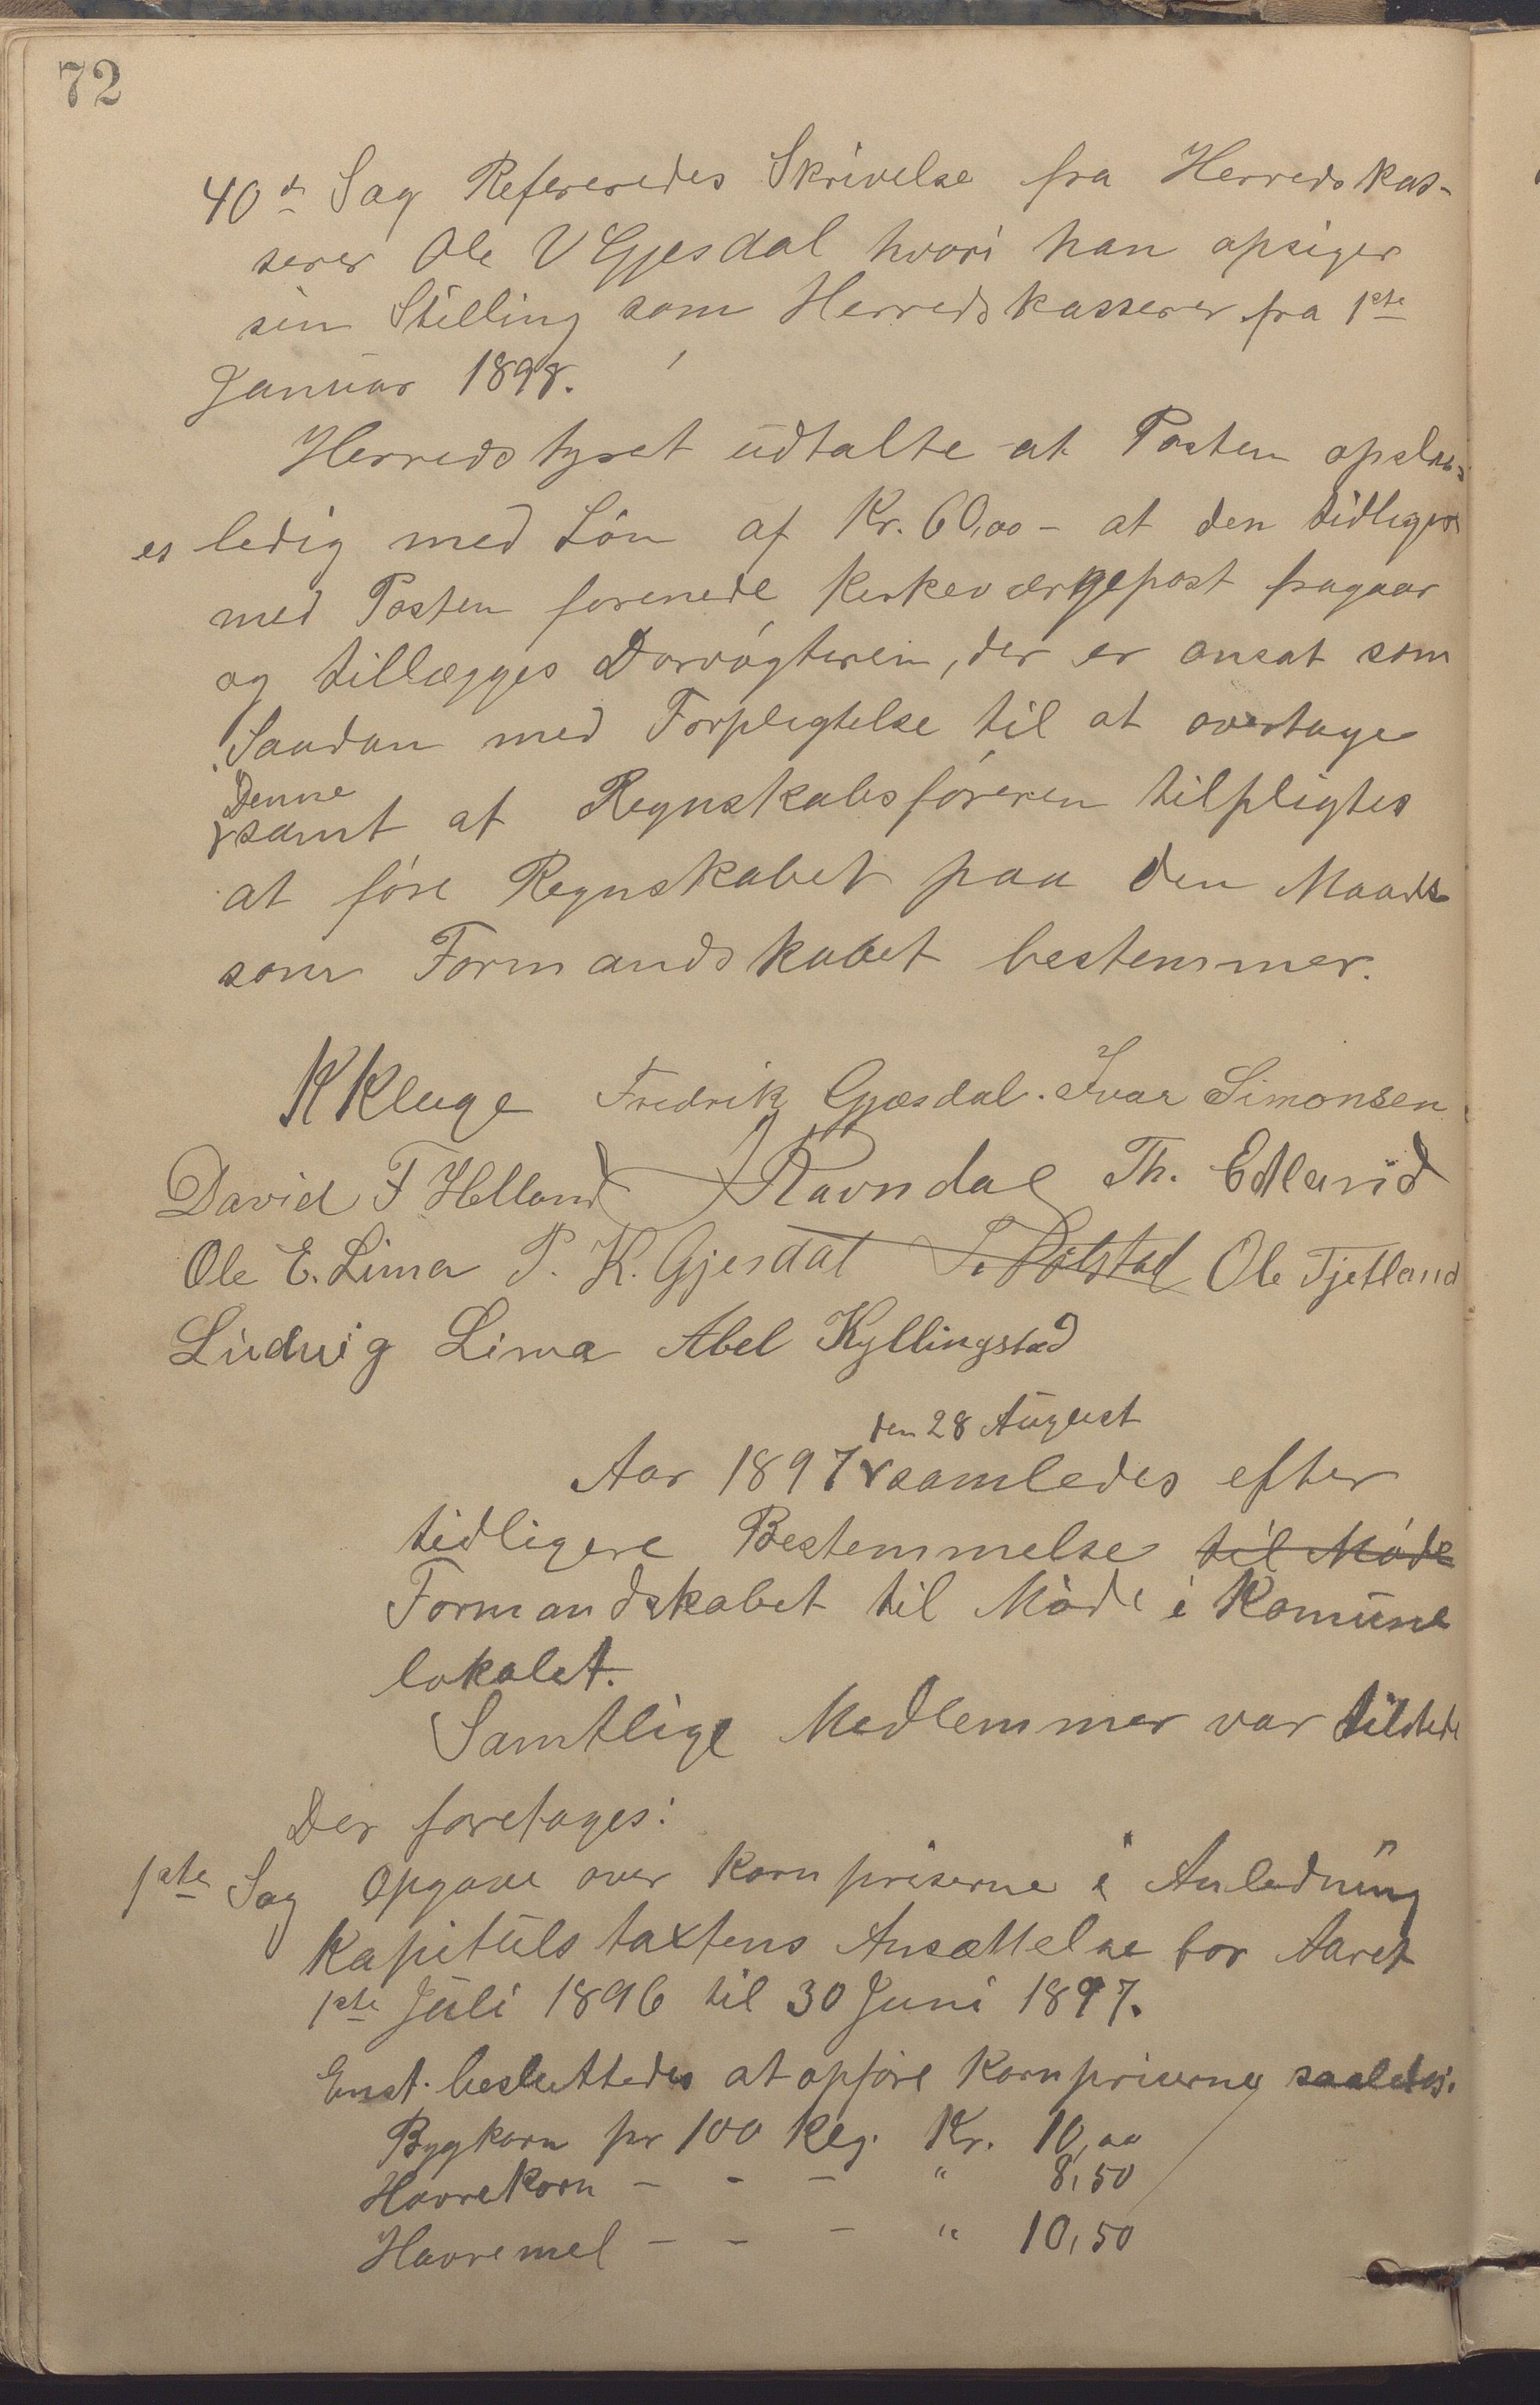 72
40de Sag Refereredes Skrivelse fra Herredskas-
serer Ole V Gjesdal hvori han opsiger
sin Stilling som Herredskasserer fra 1ste
Januar 1898.
Herredstyret udtalte at Posten opslaa-
es ledig med Løn af Kr. 60,00 - at den tidligere
med Posten forenede Kirkeværgepost fragaar
og tillægges Dørvogteren, der er ansat som
Saadan med Forpligtelse til at overtage
Denne
samt at Regnskabsføreren tilpligtes
at føre Regnskabet paa den Maade
som Formandskabet bestemmer.
K Kluge Fredrik Gjæsdal. Ivar Simonsen
David F Helland Ravndal Th. Edland
Ole E. Lima P. K. Gjesdal Ole Tjetland
Ludvig Lima Abel Kyllingstad
den 28 August
Aar 1897 samledes efter
tidligere Bestemmelse til Møde
Formandskabet til Møde i Komune
lokalet.
Samtlige Medlemmer var tilstede
Der foretages:
1ste Sag Opgave over Kornpriserne i Anledning
Kapitulstaxtens Ansættelse for Aaret
1ste Juli 1896 til 30 Juni 1897.
Enst. besluttedes at opføre Kornpriserne saaledes:
Bygkorn pr 100 Klg. Kr. 10,00
Havrekorn - - - " 8,50
Havremel - - - " 10,50